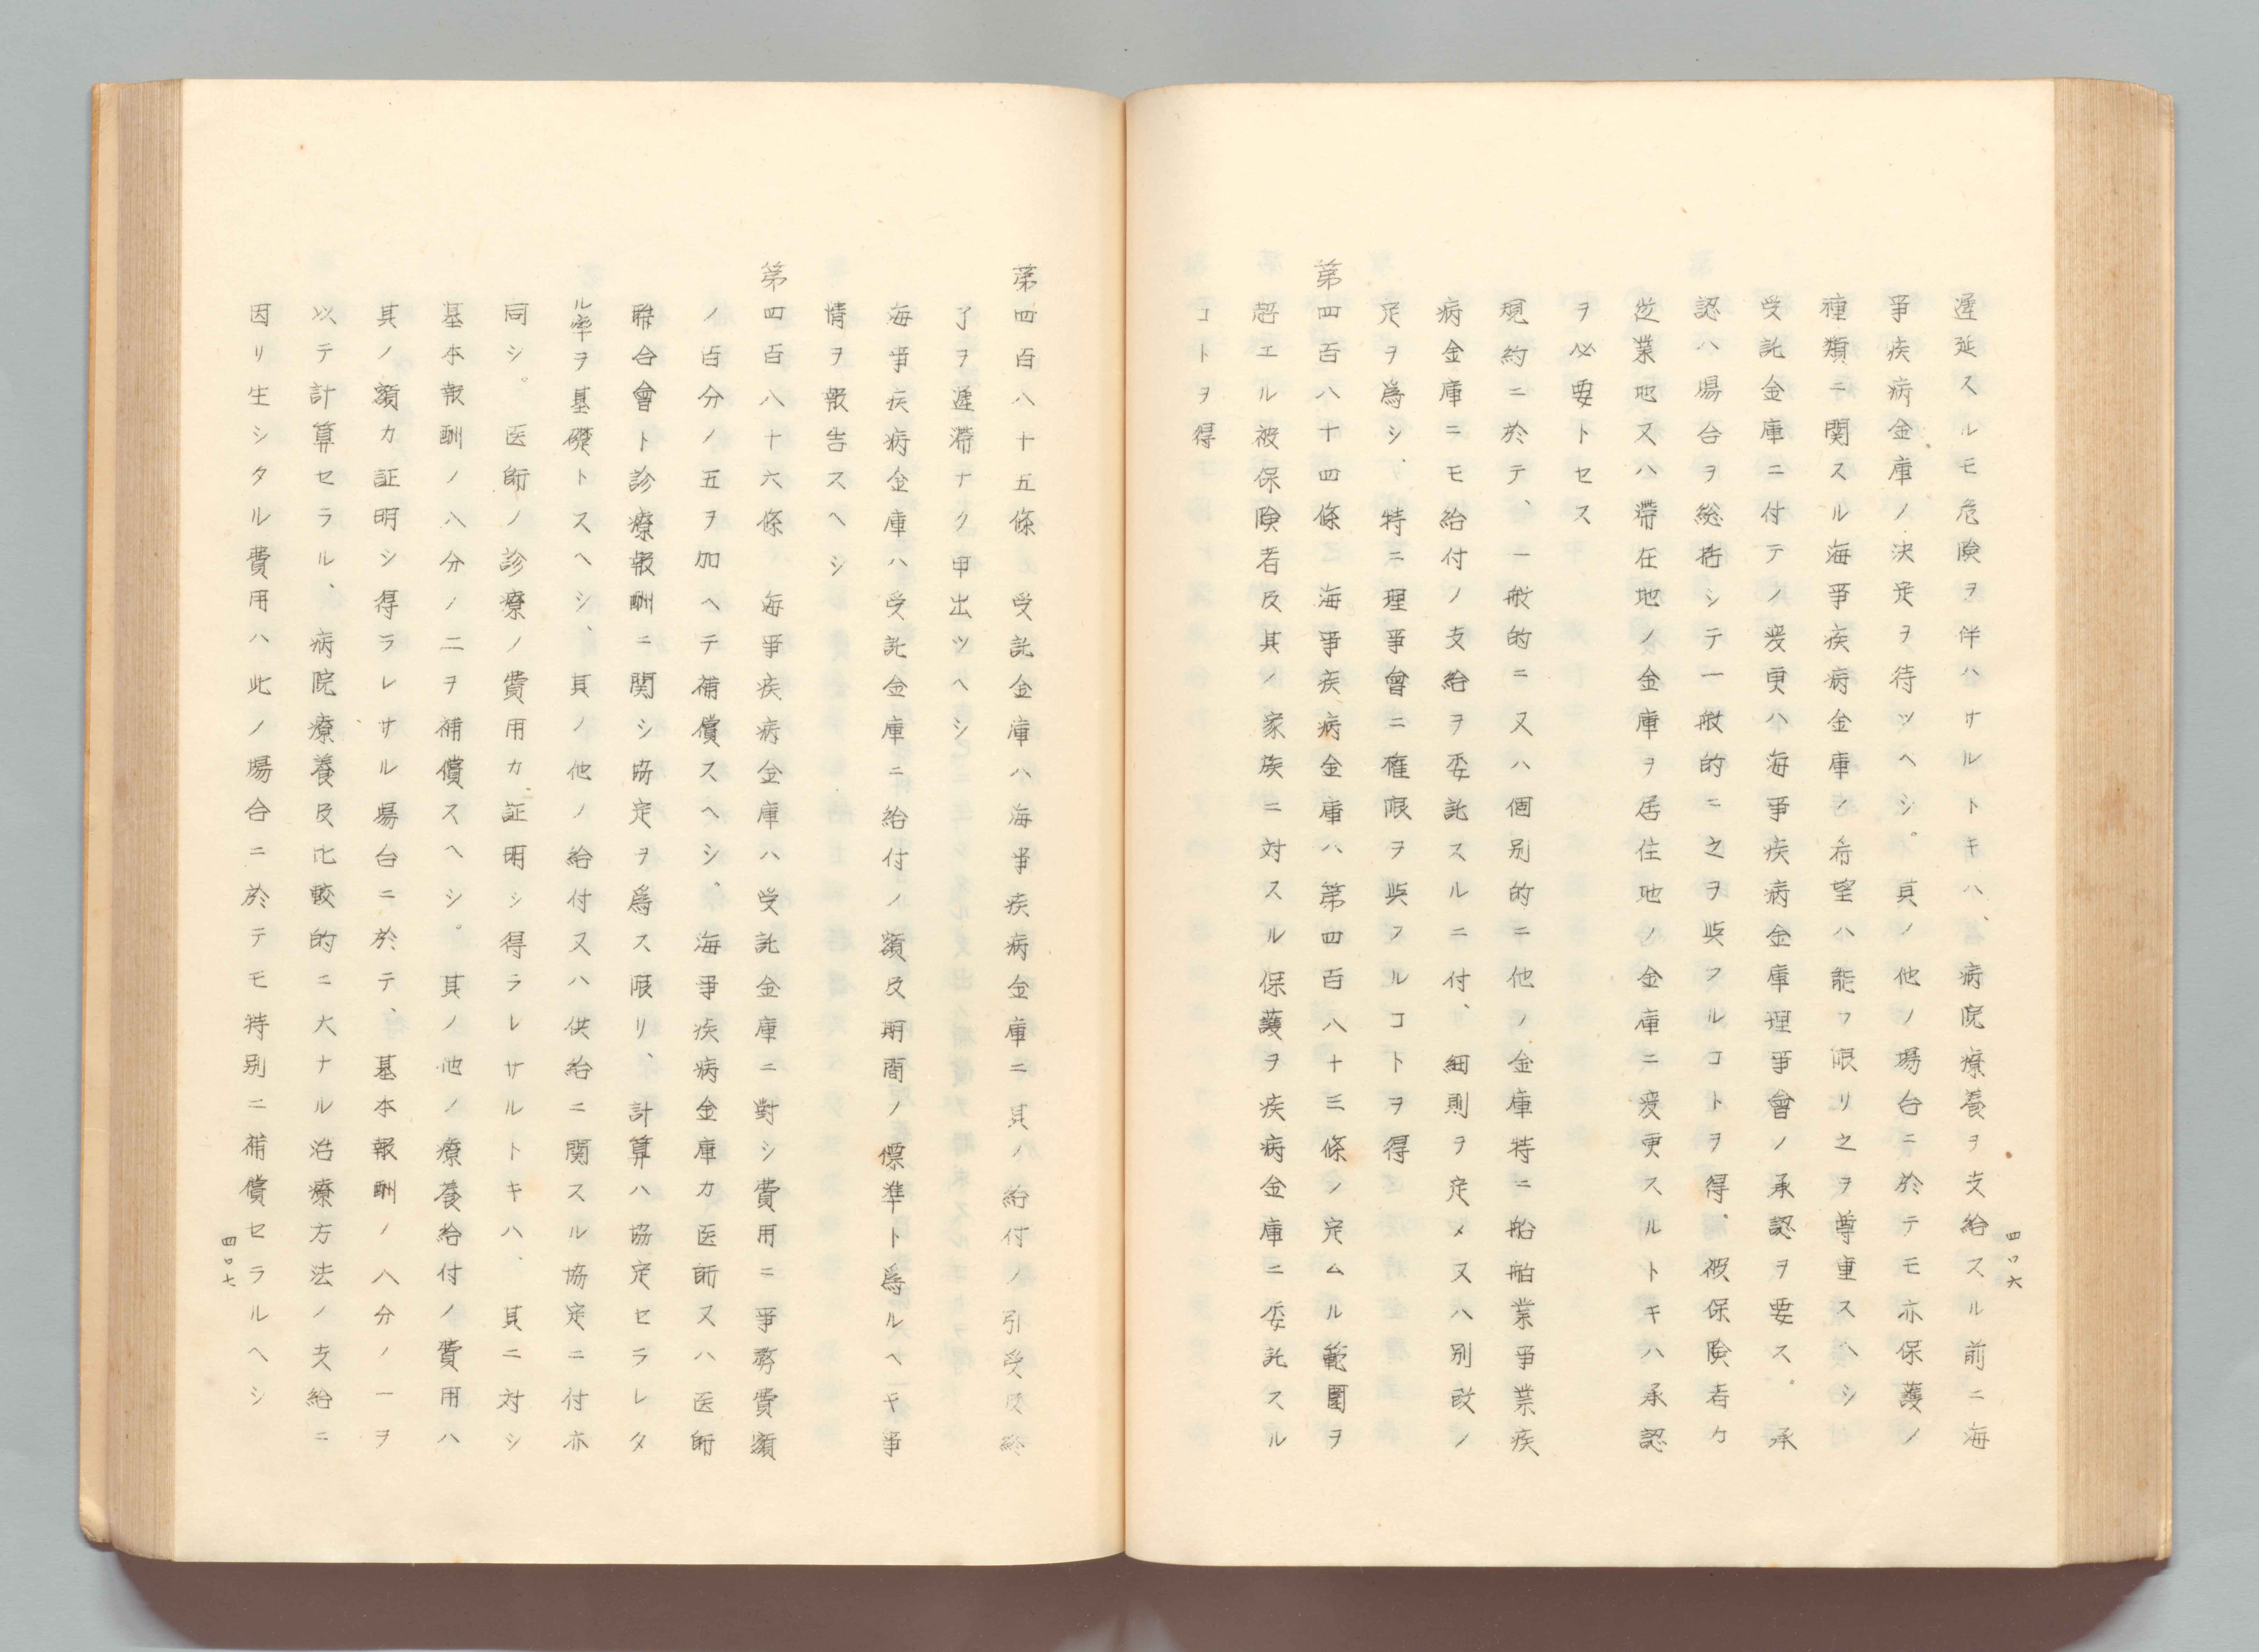 遲延スルモ危険ヲ伴ハサルトキハ、病院療養ヲ支給スル前ニ海
事疾病金庫ノ決定ヲ待ツヘシ。其ノ他ノ場合ニ於テモ亦保護ノ
種類ニ関スル海事疾病金庫ノ希望ハ能フ限リ之ヲ尊重スヘシ
受託金庫ニ付テノ変更ハ海事疾病金庫理事會ノ承認ヲ要ス。承
認ハ場合ヲ総括シテ一般的ニ之ヲ与フルコトヲ得、被保険者カ
従業地又ハ滞在地ノ金庫ヲ居住地ノ金庫ニ変更スルトキハ承認
ヲ必要トセス
規約ニ於テ、一般的ニ又ハ個別的ニ他ノ金庫特ニ船舶業事業疾
病金庫ニモ給付ノ支給ヲ委託スルニ付、細則ヲ定メ又ハ別段ノ
定ヲ為シ、特ニ理事會ニ権限ヲ与フルコトヲ得
第四百八十四條　海事疾病金庫ハ第四百八十三條ノ定ムル範囲ヲ
超エル被保険者及其ノ家族ニ対スル保護ヲ疾病金庫ニ委託スル
コトヲ得
四〇六
第四百八十五條　受託金庫ハ海事疾病金庫ニ其ノ給付ノ引受及終
了ヲ遲滞ナク申出ツヘシ
海事疾病金庫ハ受託金庫ニ給付ノ額及期間ノ標準ト為ルヘキ事
情ヲ報告スヘシ
第四百八十六條　海事疾病金庫ハ受託金庫ニ對シ費用ニ事務費額
ノ百分ノ五ヲ加ヘテ補償スヘシ、海事疾病金庫カ医師又ハ医師
聯合會ト診療報酬ニ関シ協定ヲ為ス限リ、計算ハ協定セラレタ
ル率ヲ基礎トスヘシ、其ノ他ノ給付又ハ供給ニ関スル協定ニ付亦
同シ。医師ノ診療ノ費用カ証明シ得ラレサルトキハ、其ニ対シ
基本報酬ノ八分ノ二ヲ補償スヘシ。其ノ他ノ療養給付ノ費用ハ
其ノ額カ証明シ得ラレサル場合ニ於テ、基本報酬ノ八分ノ一ヲ
以テ計算セラル、病院療養及比較的ニ大ナル治療方法ノ支給ニ
因リ生シタル費用ハ此ノ場合ニ於テモ特別ニ補償セラルヘシ
四〇七